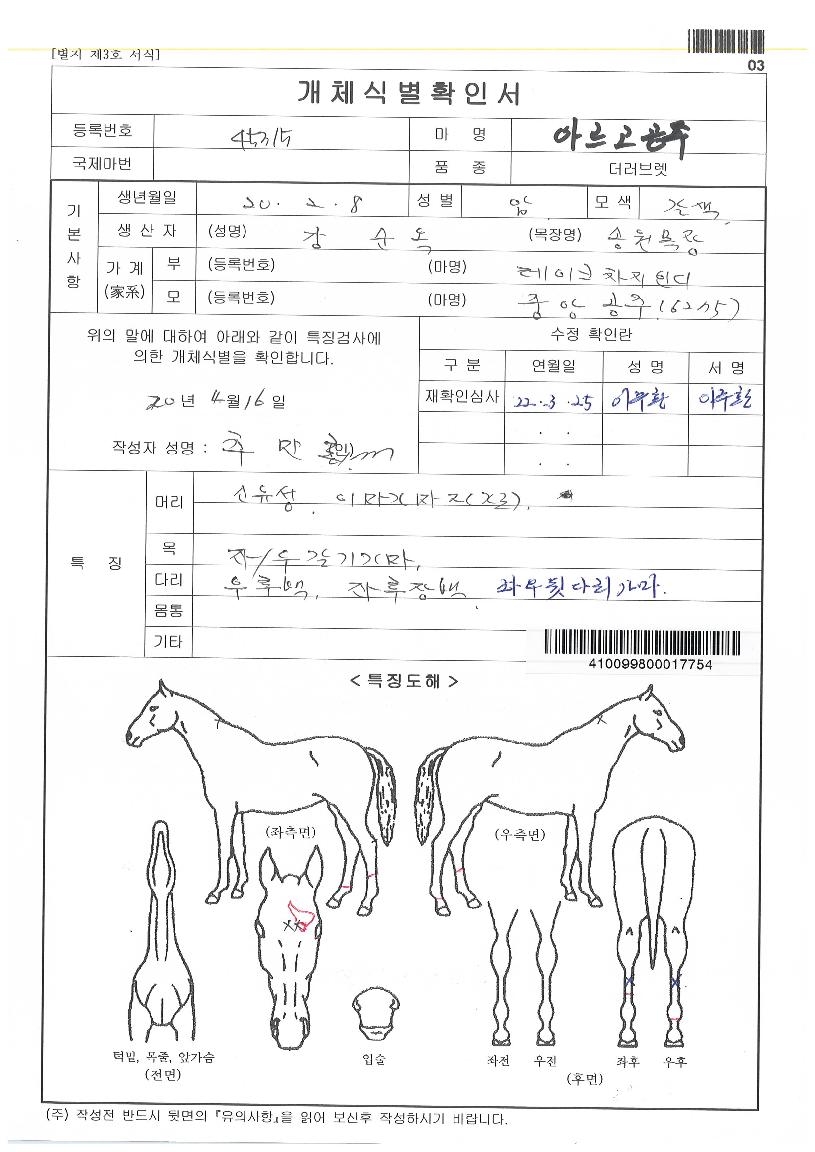 [별지 제3호 서식]
03
개체식별확인서
등록번호 45315 마 명 아르고공주
국제마번 품 종 더러브렛
기본사항
생년월일 20 . 2 . 8 성별 암 모색 갈색
생 산 자 (성명) 강 순 옥 (목장명) 송원목장
가 계 (家系)
부 (등록번호) (마명) 레이크차지인디
모 (등록번호) (마명) 중앙공주
위의 말에 대하여 아래와 같이 특징검사에
의한 개체식별을 확인합니다.
20년 4월 16일
작성자 성명 :
수정 확인란
구 분 연월일 성 명 서 명
재확인심사 22 . 3 . 25
. .
. .
특 징
머리
목 좌/우갈기가마,
다리 우후백, 좌후장백 좌우뒷다리가마.
몸통
기타
410099800017754
< 특징도해 >
(좌측면) (우측면)
턱밑, 목줄, 앞가슴
(전면)
입술
좌전 우전 좌후 우후
(후면)
(주) 작성전 반드시 뒷면의 『유의사항』을 읽어 보신후 작성하시기 바랍니다.